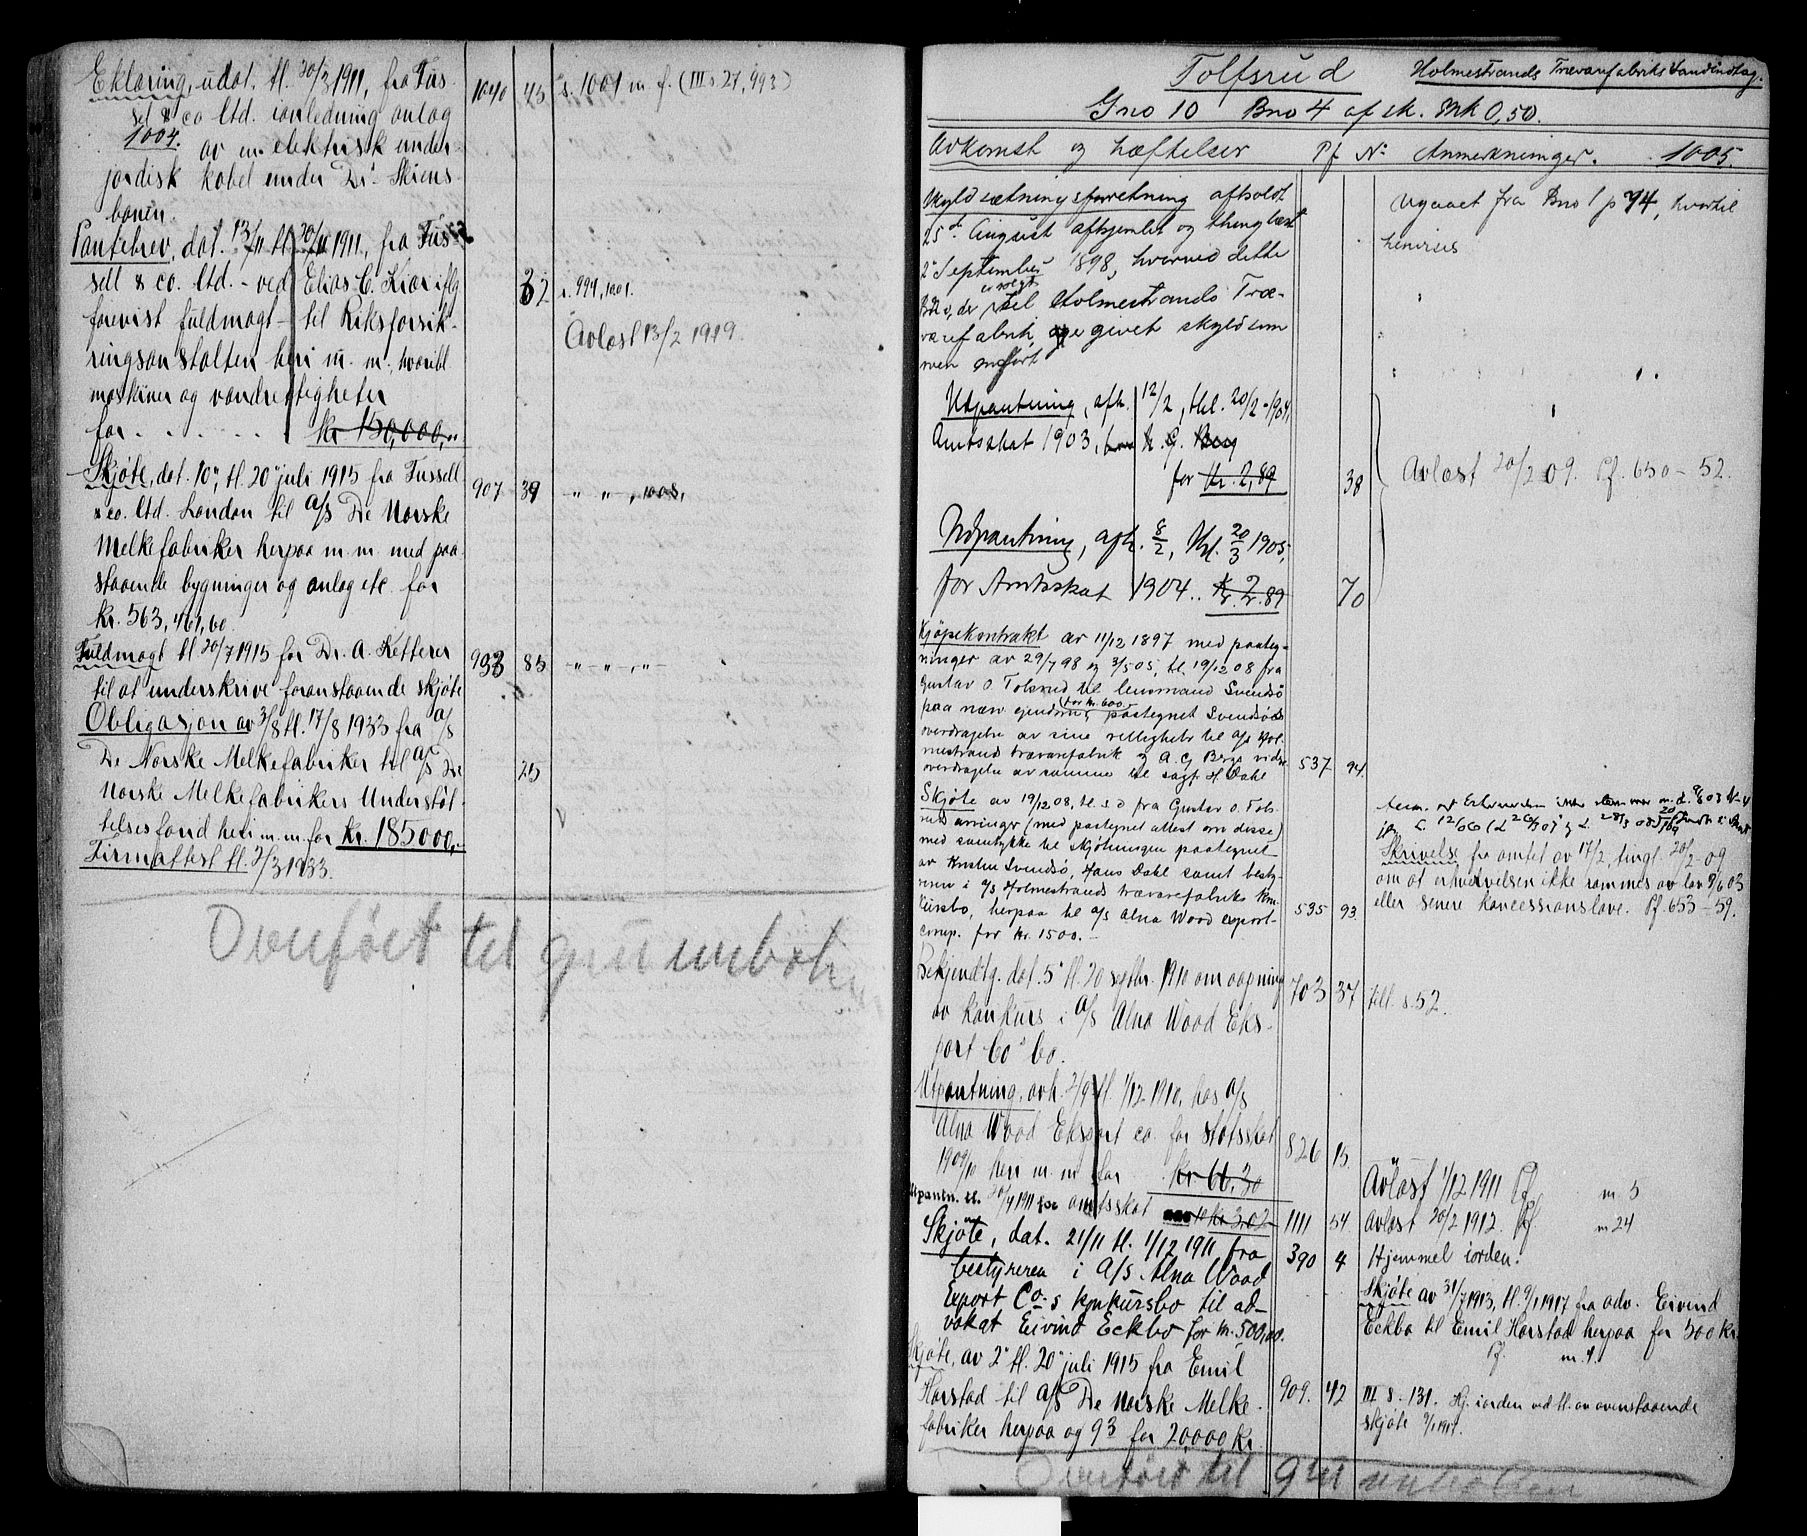 Erklæring, udat. tl. 20/3 1911, fra Fus-
sel & co ltd. i anledning anlæg
1004.
av en elektrisk under-
jordisk kabel under Dr.-Skiens-
banen.
1040 45 s. 1001 m. f. (III s 27, 993)
Pantebrev, dat. 13/11 tl. 20/11 1911, fra Fus-
sell & co. ltd. - ved Elias C. Kiær iflg
forevist fuldmagt - til Riksforsik-
ringsanstalten heri m. m., hvoribl.
maskiner og vandrettigheter
for . . . . . kr 150,000,"
62 s. 994, 1001.
Avlæst 13/2 1919.
Skjøte, dat. 10", tl. 20" juli 1915 fra Fussell
& co. ltd. London til A/S De Norske
Melkefabriker herpaa m. m. med paa-
staaende bygninger og anlæg etc. for
kr. 563,461,60
907 39 " " , 1008,
Fuldmagt tl 20/7 1915 for Dr. A. Ketterer
til at underskrive foranstaaende skjøte
933 85 - " - " - , " -
Obligasjon av 3/8 tl. 17/8 1933 fra A/S
De Norske Melkefabriker til A/S De
Norske Melkefabrikers Understøt-
telsesfond heri m. m. for kr. 185000,-
25
Firmaattest tl. 2/3 1933.
Overført til grunnboken
Tolfsrud Holmestrands Trævarefabriks Vandindtag.
Gno 10 Bno 4 af sk. Mk 0,50.
Avkomst og Hæftelser Pf No Anmerkninger. 1005.
Skyldsætningsforretning afholdt
25de August afhjemlet og thinglæst
2" September 1898, hvorved dette
er solgt
Bno, der til Holmestrands Træ-
varefabrik, er givet skyld som
oven anført
Utgaaet fra Bno 1 p 94, hvortil
henvises
Utpantning, afh. 12/2, thl. 20/2-1904
Amtsskat 1903, hos A. G. Berg
for Kr. 2,89
38
Avlæst 20/2 09. Pf. 650 - 52.
Udpantning, afh. 8/2, thl. 20/3 1905,
for Amtsskat 1904. . Kr. 2.89
70
Kjøpekontrakt av 11/12 1897 med paateg-
ninger av 29/7 98 og 3/5 05, tl. 19/12 08 fra
Gustav O. Tolsrud til lensmand Svendsø
paa nærv. eiendom (for kr. 600,-) paategnet Svendsøs
overdragelse av sine rettigheter til A/S Hol-
mestrand trævarefabrik og A. G. Bergs videre
overdragelse av samme til sagf. H. Dahl
537 94.
Skjøte av 19/12 08, tl. s. d fra Gustav O. Tols-
ruds arvinger (med paategnet attest om disse)
med samtykke til skjøtningen paategnet
av Kristen Svendsø, Hans Dahl samt besty-
reren i A/S Holmestrands trævarefabriks kon-
kursbo, herpaa til A/S Alna Wood export-
comp. for kr. 1500.-
535 93.
Skrivelse fra amtet av 17/2, tingl. 20/2 - 09
om at erhvervelsen ikke rammes av lov 9/6 03
eller senere koncessionslove. Pf. 653 - 59.
Bekjendtg. dat. 5" tl. 20 septbr. 1910 om aapning
av konkurs i A/S Alna Wood Eks-
port Co's bo.
703 37 till. s. 52.
Utpantning, avh. 2/9 tl. 1/12 1910, hos A/S
Alna Wood Eksport co. for statsskat
1909/10 heri m. m. for . kr 66.30
826 15.
Avlæst 1/12 1911 Pf. m. 5
Utpantn. tl. 20/7 1911 for amtsskat kr 3.02
1111 54 Avlæst 20/2 1912. Pf. m 24
Skjøte, dat. 21/11 tl. 1/12 1911, fra
bestyreren i A/S Alna Wood
Export Co.s konkursbo til ad-
vokat Eivind Eckbo for kr. 500,00.
390 4 Hjemmel iorden.
Skjøte av 31/7 1913, tl. 9/1 1917 fra adv. Eivind
Eckbo til Emil Harstad herpaa for 500 kr.
Pf. m. 1.
Skjøte, av 2" tl. 20" juli 1915 fra Emil
Harstad til A/S De Norske Melke-
fabriker herpaa og 93 for 20,000 kr.
909. 42 III s. 131. Hj. iorden ved tl. av ovenstaaende
skjøte 9/1 1917.
Overført til grunnboken